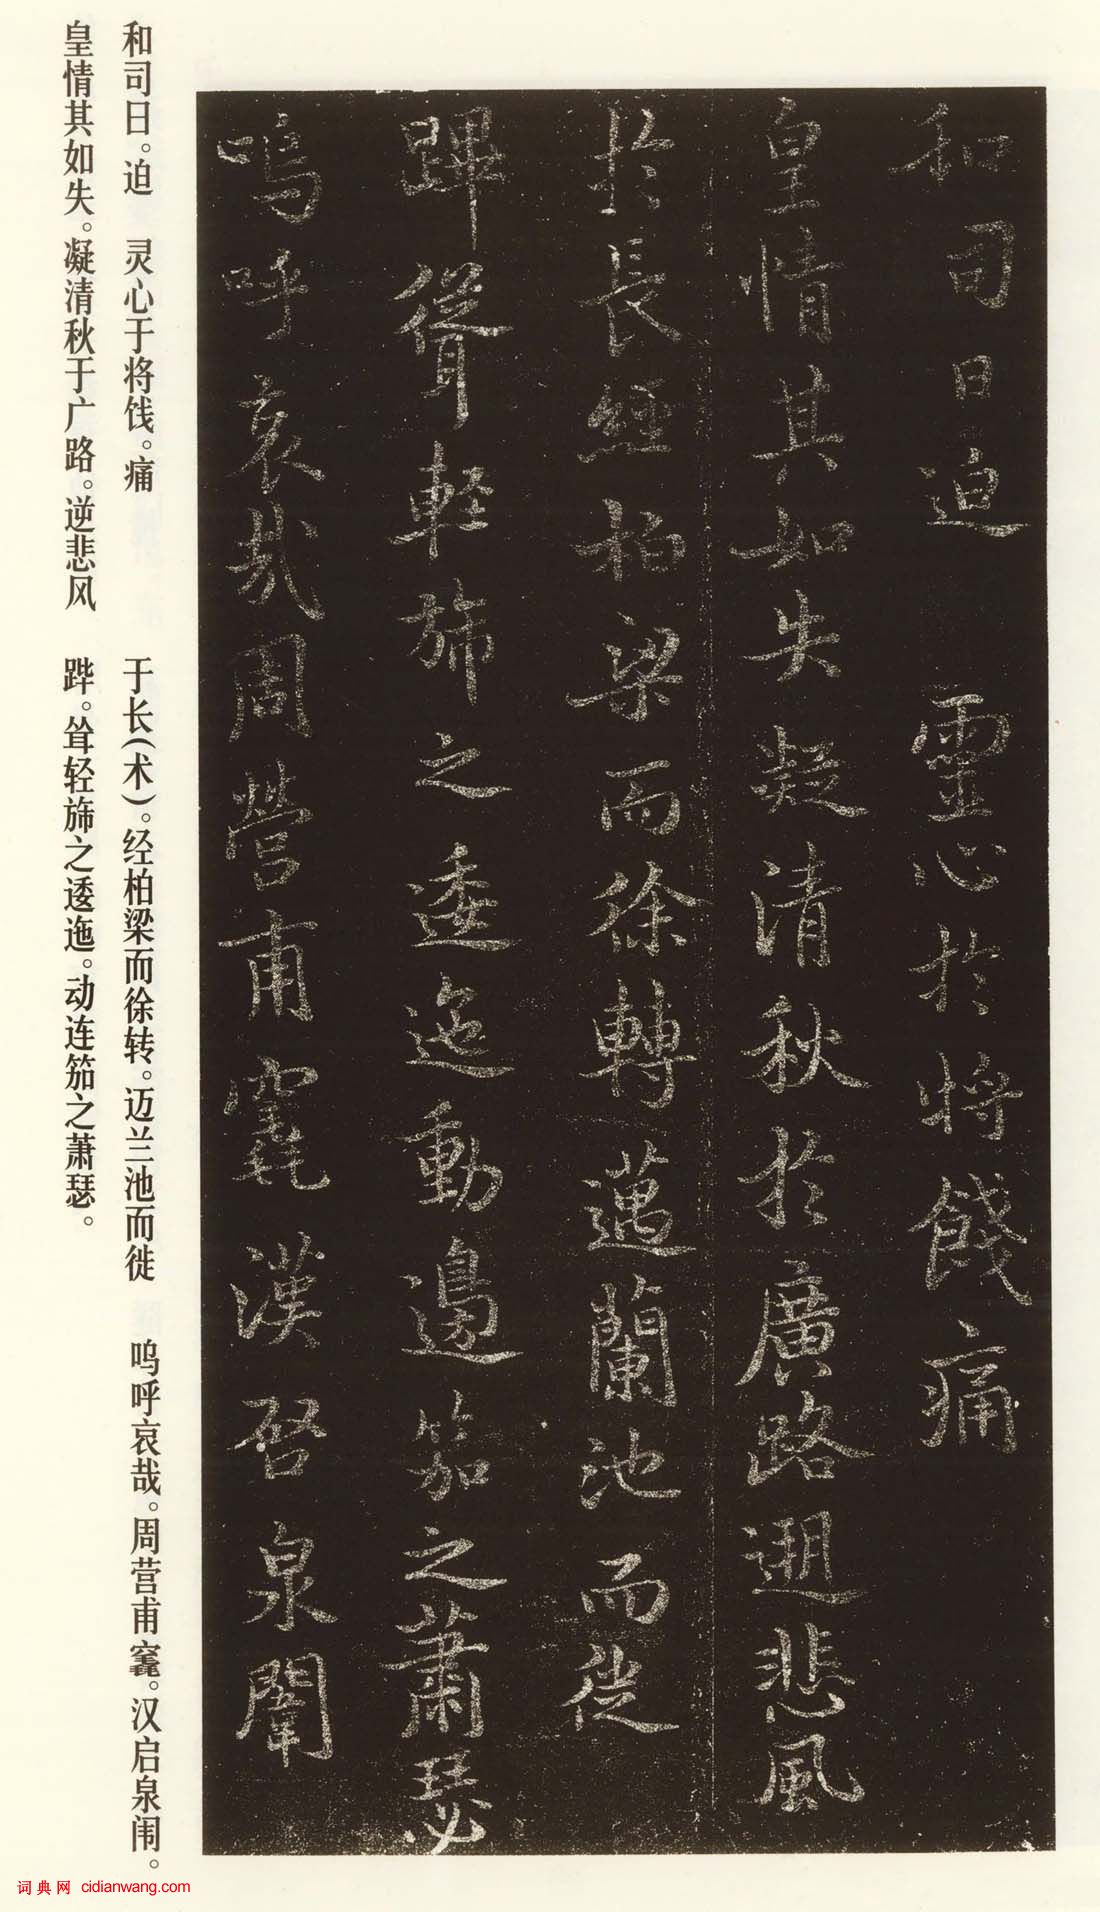 和司日迫 靈心於將餞痛
皇情其如失凝清秋於廣路遡悲風
於長經柏梁而徐轉邁蘭池而徙
蹕聳軽旆之逶迤動邊笳之蕭瑟
嗚呼哀哉周營甫竁漢启泉
和司日。迫 灵心于将饯。痛
皇情其如失。凝清秋于广路。逆悲风
于长(术)。经柏梁而徐转。迈兰池而徙
跸。耸轻旆之逶迤。动连笳之萧瑟。
呜呼哀哉。周营甫竁。汉启泉闱。
词典网 cidianwang.com